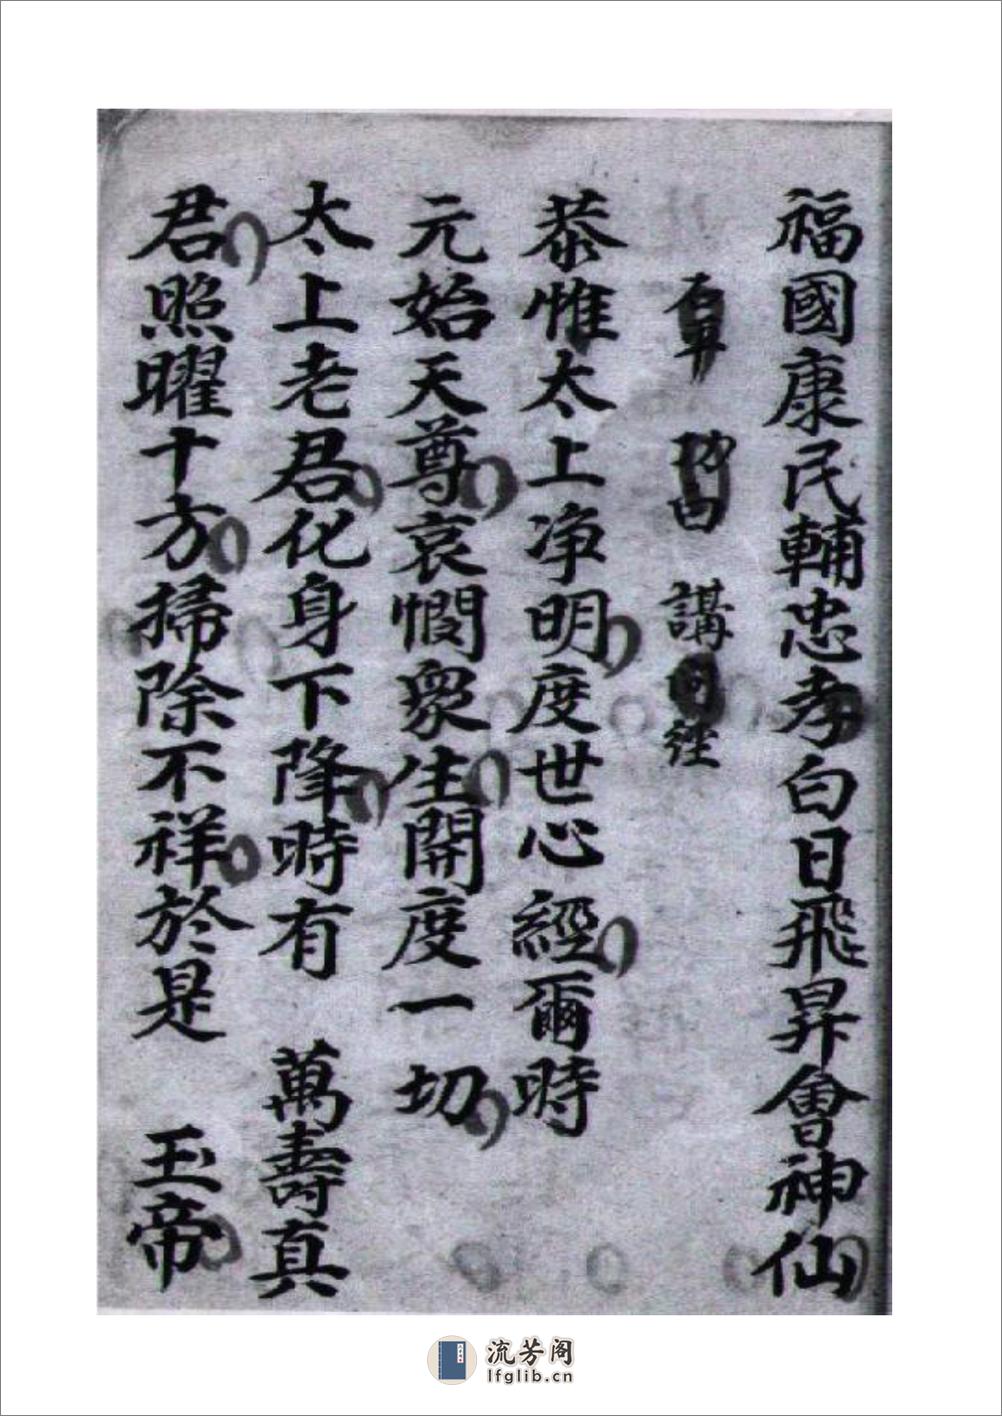 福國康民輔忠孝白日飛昇會神仙
白 講 經
恭惟太上净明度世心經爾時
元始天尊哀憫眾生開度一切
太上老君化身下降時有 萬壽真
君照曜十方掃除不祥於是 玉帝
流芳阁
lfglib.cn